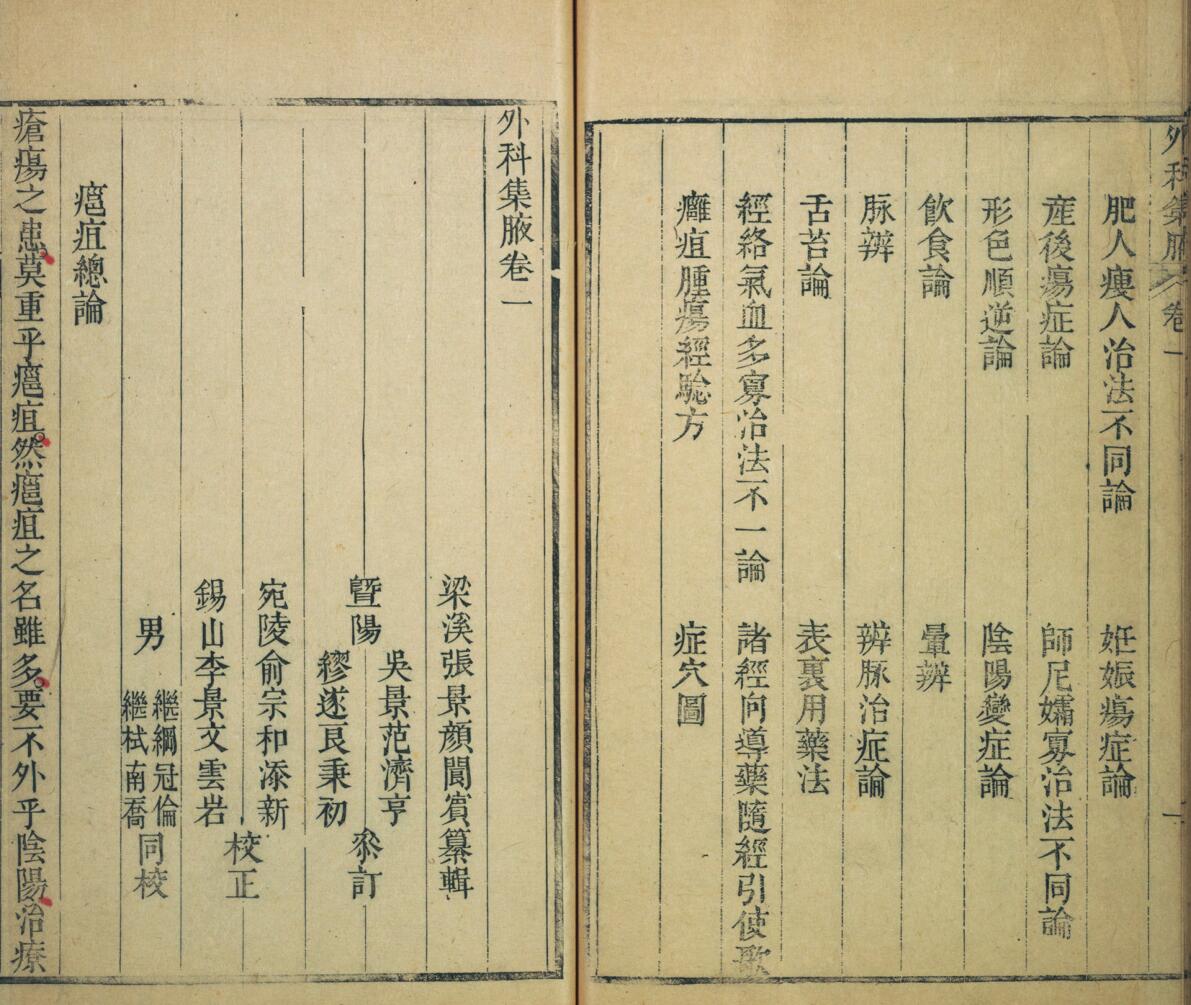 外科集腋 卷一
肥人瘦人治法不同論 姙娠瘍症論
産後瘍症論 師尼孀寡治法不同論
形色順逆論 陰陽變症論
飲食論 暈辨
脉辨 辨脉治症論
舌苔論 表裏用藥法
經絡氣血多寡治法不一論 諸經向導藥隨經引使歌
癰疽腫瘍經騐方 症穴圖
一
外科集腋卷一
梁溪張景顏閬賔纂輯
暨陽 吳景范濟亨 繆遂良秉初 叅訂
宛陵俞宗和添新
錫山李景文雲岩 校正
男 繼綱冠倫 繼栻南喬 同校
癰疽總論
瘡瘍之患莫重乎癰疽然癰疽之名雖多要不外乎陰陽治療